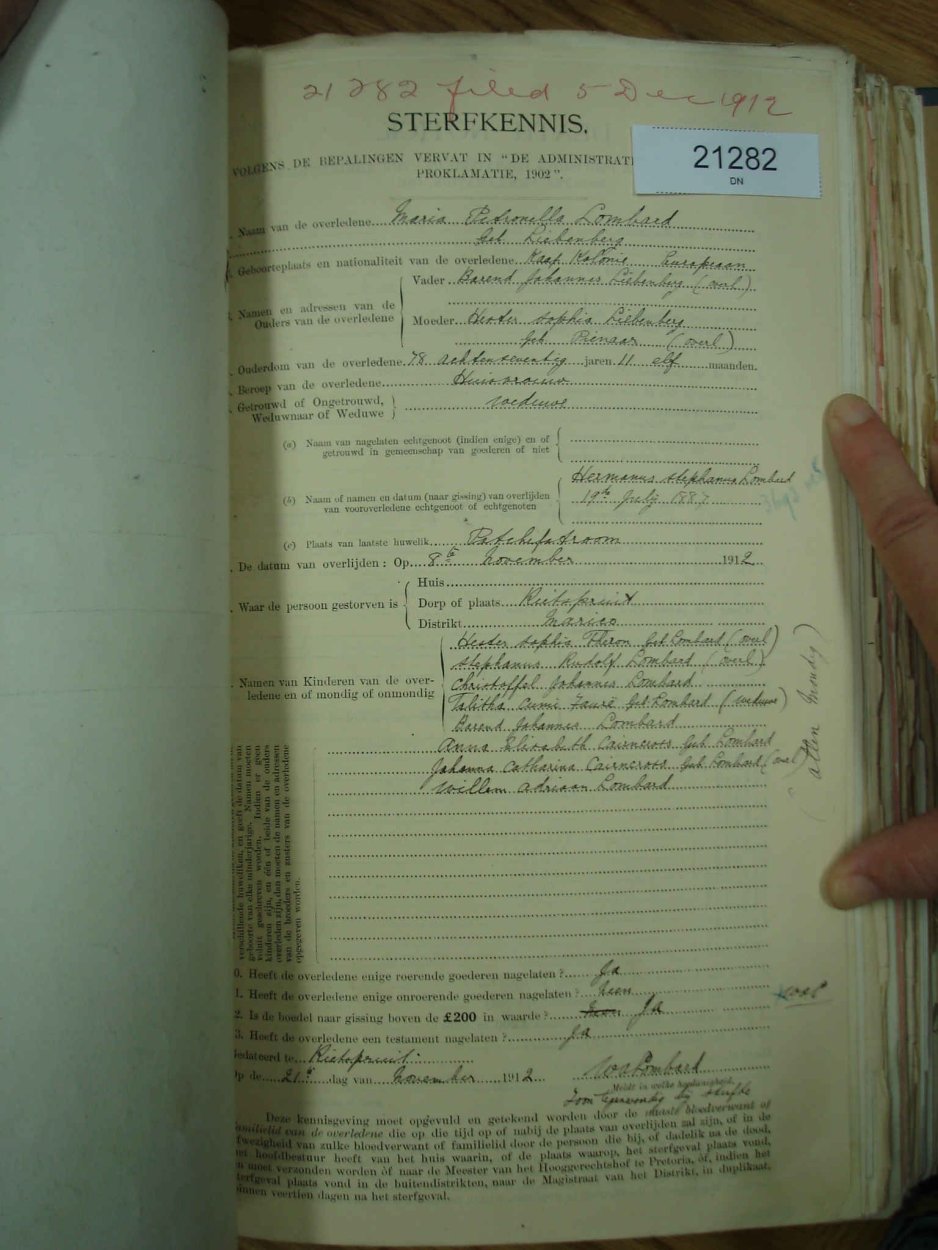 21282 filed 5 Dec 1912
STERFKENNIS.
21282
DN
VOLGENS DE BEPALINGEN VERVAT IN "DE ADMINISTRATI
PROKLAMATIE, 1902".
. Naam van de overledene Maria Petronella Lombard
geb. Liebenberg
. Geboorteplaats en nationaliteit van de overledene Kaap Kolonie Europeaan
. Namen en adressen van de Ouders van de overledene
Vader Barend Johannes Liebenberg (overl)
Moeder Hester Sophia Liebenberg
geb. Pienaar (overl)
. Ouderdom van de overledene 78 achtenseventig jaren 11 elf maanden.
. Beroep van de overledene Huisvrouw
. Getrouwd of Ongetrouwd,
Weduwnaar of Weduwe } weduwe
(a) Naam van nagelaten echtgenoot (indien enige) en of
getrouwd in gemeenschap van goederen of niet
(b) Naam of namen en datum (naar gissing) van overlijden
van vooroverledene echtgenoot of echtgenoten
Hermanus Stephanus Lombard
19de July 188
(c) Plaats van laatste huwelik Potchefstroom
. De datum van overlijden: Op 8ste November 1912
. Waar de persoon gestorven is
Huis
Dorp of plaats Rietspruit
Distrikt Marico
. Namen van Kinderen van de over-
ledene en of mondig of onmondig
Hester Sophia Theron geb Lombard (overl)
Stephanus Rudolf Lombard (overl)
Christoffel Johannes Lombard
Talitha Cumi Faure geb Lombard (weduwe)
Barend Johannes Lombard
Anna Elisabeth Cairncross geb Lombard
Johanna Catharina Cairncross geb Lombard (overl)
Willem Adriaan Lombard
(allen mondig)
verschillende huweliken, en geeft de datum van
geboorte van elke minderjarige. Namen moeten
voluit geschreven worden. Indien er geen
kinderen zijn, en één of beide van de ouders
overleden zijn, dan moeten de namen en adressen
van de broeders en zusters van de overledene
opgegeven worden.
0. Heeft de overledene enige roerende goederen nagelaten? Ja
1. Heeft de overledene enige onroerende goederen nagelaten? Neen
2. Is de boedel naar gissing boven de £200 in waarde? Neen Ja
3. Heeft de overledene een testament nagelaten? Ja
edateerd te Rietspruit
p de 21 dag van November 1912
WA Lombard
Meldt in welke hoedanigheid.
Zoon tegenwoordig bij sterfte
Deze kennisgeving moet opgevuld en getekend worden door de naaste bloedverwant of
amilielid van de overledene die op die tijd op of nabij de plaats van overlijden zal zijn, of in de
fwezigheid van zulke bloedverwant of familielid door de persoon die bij, of dadelik na de dood,
et hoofdbestuur heeft van het huis waarin, of de plaats waarop, het sterfgeval plaats vond,
n moet verzonden worden óf naar de Meester van het Hooggerechtshof te Pretoria, óf, indien het
terfgeval plaats vond in de buitendistrikten, naar de Magistraat van het Distrikt, in duplikaat,
innen veertien dagen na het sterfgeval.